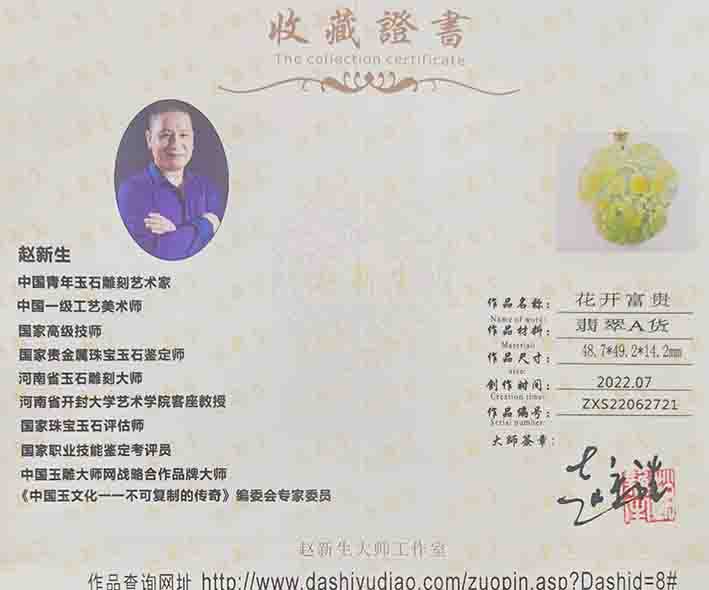 收藏證書
The collection certificate
赵新生
中国青年玉石雕刻艺术家
中国一级工艺美术师
国家高级技师
国家贵金属珠宝玉石鉴定师
河南省玉石雕刻大师
河南省开封大学艺术学院客座教授
国家珠宝玉石评估师
国家职业技能鉴定考评员
中国玉雕大师网战略合作品牌大师
《中国玉文化一一不可复制的传奇》编委会专家委员
作品名称: 花开富贵
Name of word:
作品材料: 翡翠A货
Material:
作品尺寸: 48.7*49.2*14.2mm
area:
创作时间: 2022.07
Creation time:
作品编号: ZXS22062721
Serial number:
大师签章:
赵新生大师工作室
作品查询网址 http://www.dashiyudiao.com/zuopin.asp?Dashid=8#